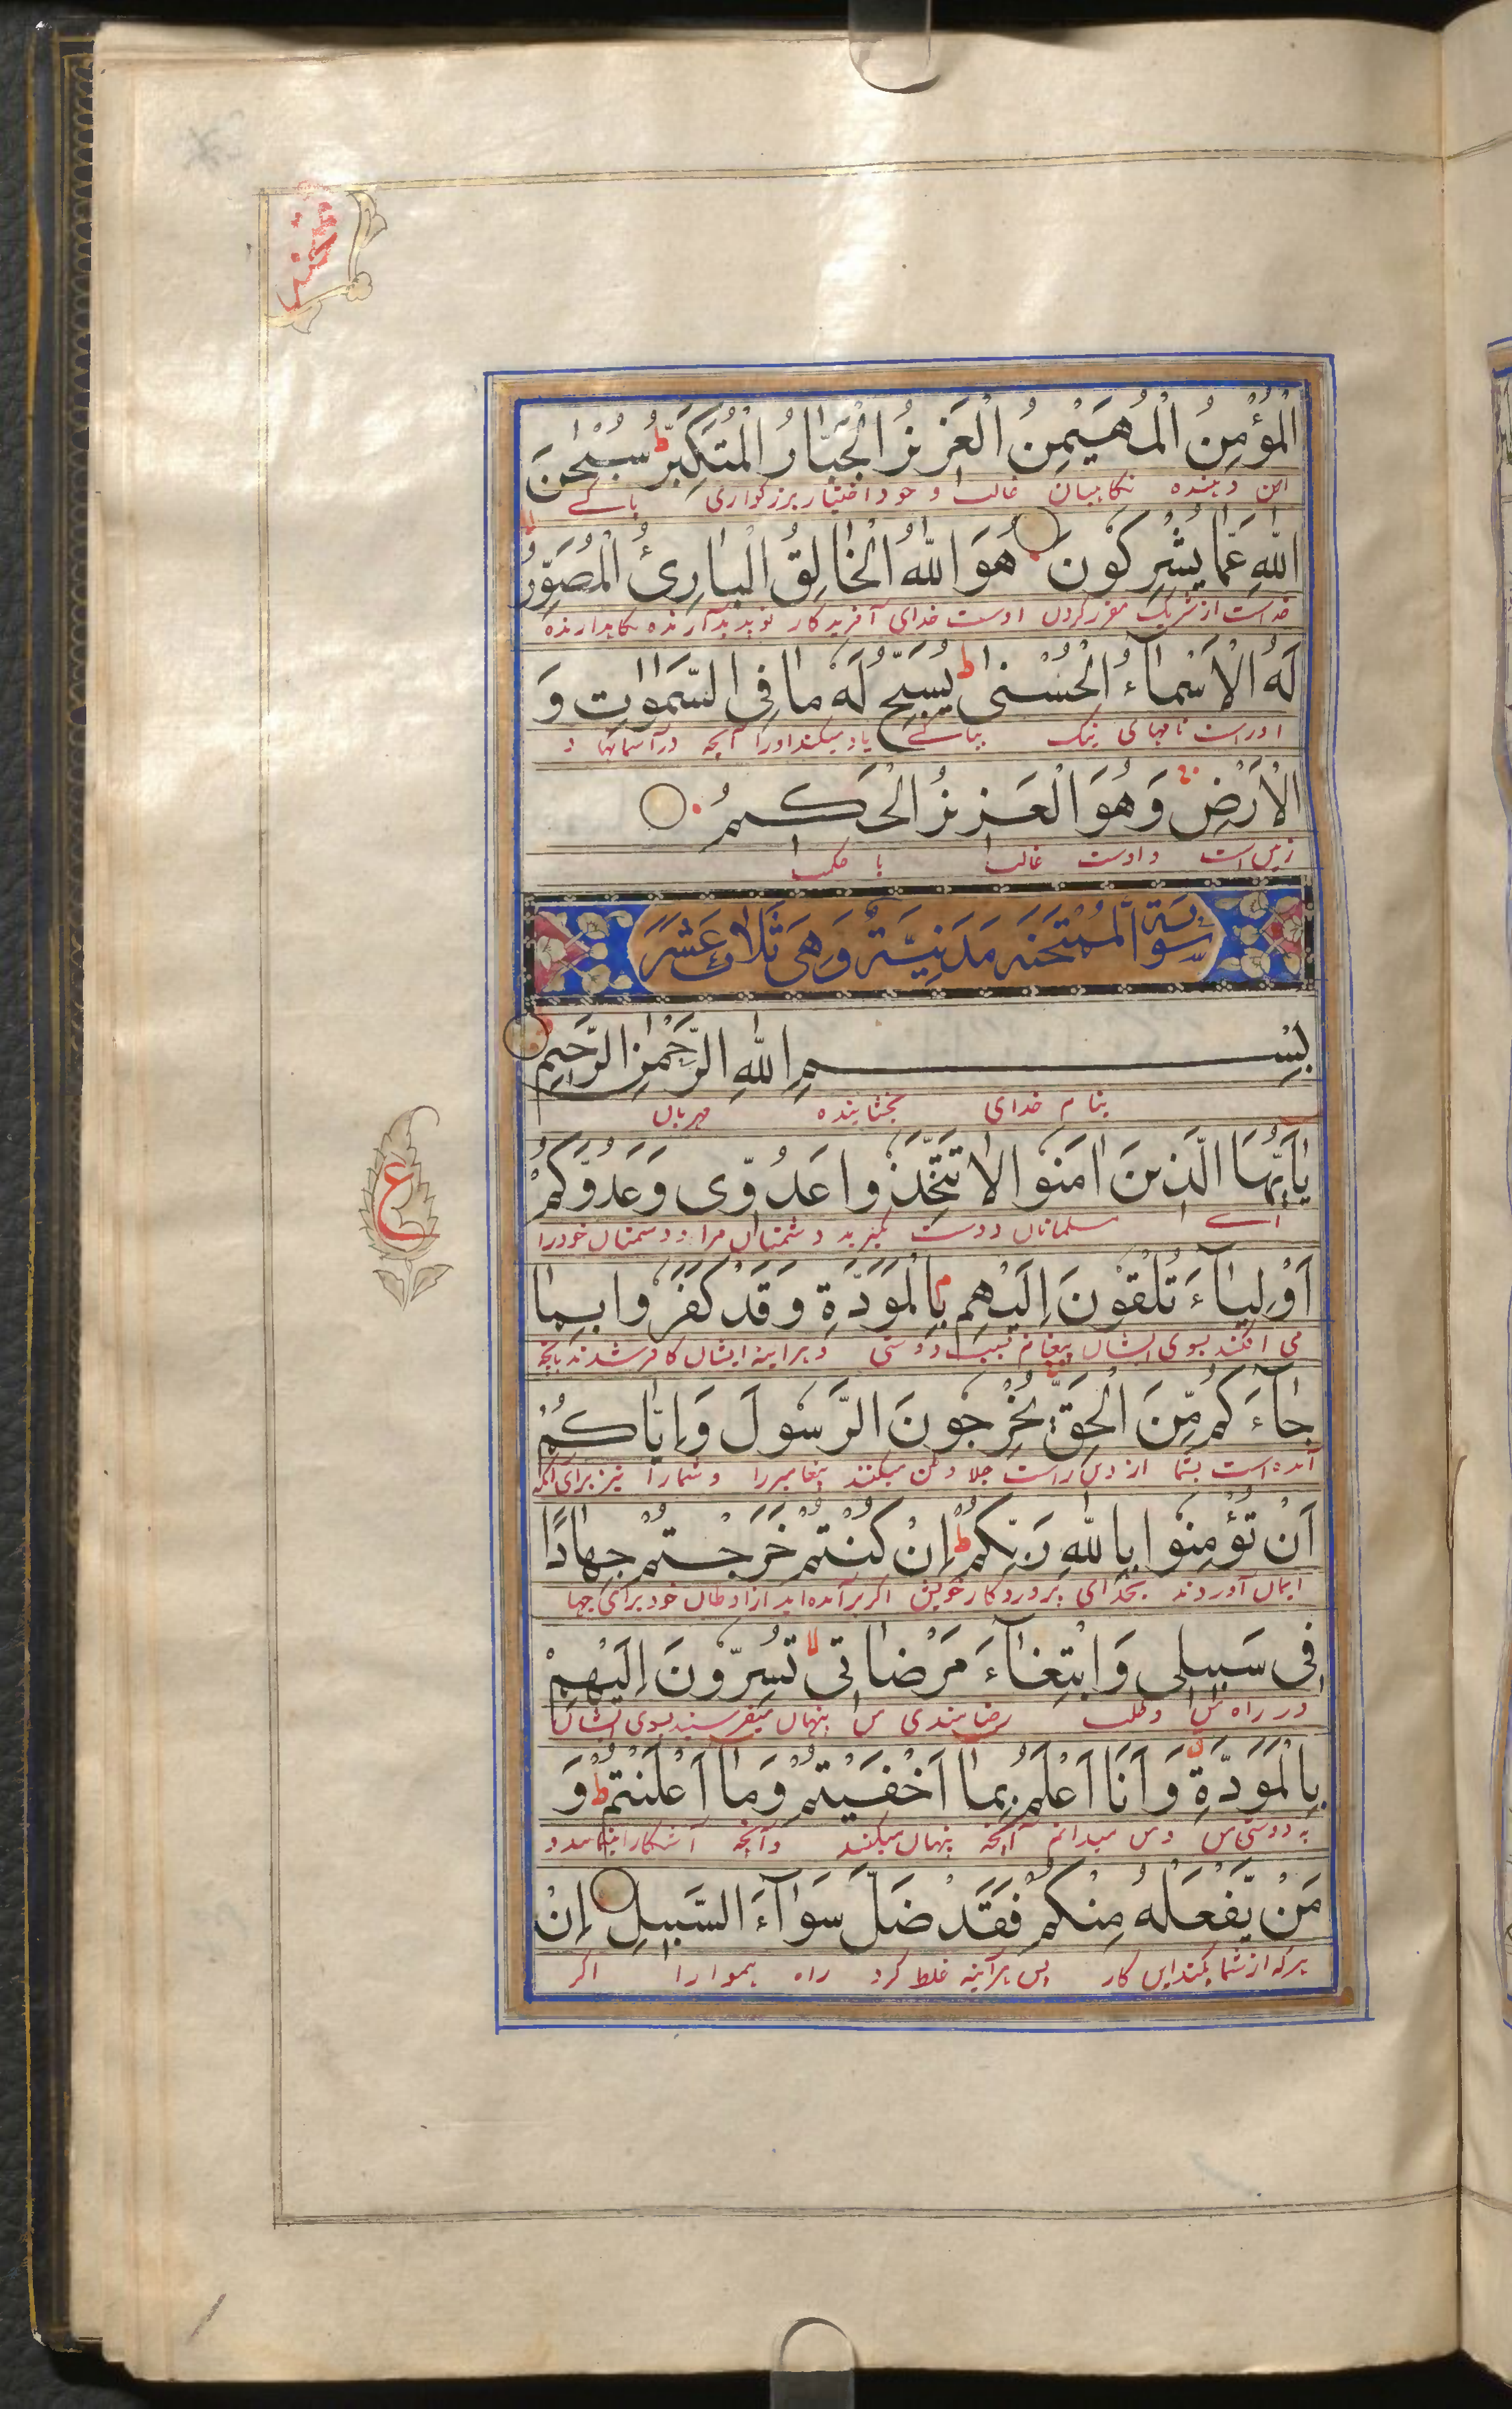 ممتحنه
الْمُؤْمِنُ الْمُهَيْمِنُ الْعَزِيْزُ الْجَبَّارُ الْمُتَكَبِّرُ ط سُبْحٰنَ
امن دهنده نگاهبان غالب و خود اختیار بزرگواری پاکے
اللّٰهِ عَمَّا يُشْرِكُوْنَ هُوَ اللّٰهُ الْخَالِقُ الْبَارِئُ الْمُصَوِّرُ
خداست از شریک مقرر کردن اوست خدای آفریدگار نو پدید آرنده نگاهدارنده
لَهُ الْاَسْمَآءُ الْحُسْنٰى ط يُسَبِّحُ لَهٗ مَا فِى السَّمٰوٰتِ وَ
اوراست نامهای نیک بپاکے یاد میکند اورا آنچه در آسمانها و
الْاَرْضِ وَهُوَ الْعَزِيْزُ الْحَكِيْمُ
زمین است و اوست غالب با حکمت
سُوْرَةُ الْمُمْتَحِنَه مَدَنِيَّةٌ وَهِىَ ثَلَاثَ عَشَرَ
بِسْمِ اللّٰهِ الرَّحْمٰنِ الرَّحِيْمِ
بنام خدای بخشاینده مهربان
يٰاَيُّهَا الَّذِيْنَ اٰمَنُوْا لَا تَتَّخِذُوْا عَدُوِّىْ وَعَدُوَّكُمْ
اے مسلمانان دوست مگیرید دشمنان مرا و دشمنان خود را
ع
اَوْلِيَآءَ تُلْقُوْنَ اِلَيْهِمْ بِالْمَوَدَّةِ وَقَدْ كَفَرُوْا بِمَا
می افکنند بسوی ایشان پیغام بسبب دوستی و هرآینه ایشان کافر شدند بآنچه
جَآءَكُمْ مِّنَ الْحَقِّ يُخْرِجُوْنَ الرَّسُوْلَ وَاِيَّاكُمْ
آمده است بشما از دین راست جلا وطن میکنند پیغامبر را و شمارا نیز برای آنکه
اَنْ تُؤْمِنُوْا بِاللّٰهِ رَبِّكُمْ ط اِنْ كُنْتُمْ خَرَجْتُمْ جِهَادًا
ایمان آوردند بخدای پروردگار خویش اگر برآمده اید از اوطان خود برای جهاد
فِىْ سَبِيْلِىْ وَابْتِغَآءَ مَرْضَاتِىْ لا تُسِرُّوْنَ اِلَيْهِمْ
در راه من و طلب رضامندی من پنهان میفرستید بسوی ایشان
بِالْمَوَدَّةِ وَاَنَا اَعْلَمُ بِمَا اَخْفَيْتُمْ وَمَا اَعْلَنْتُمْ ط وَ
و من میدانم آنچه پنهان میکنند و آنچه آشکارا و
مَنْ يَّفْعَلْهُ مِنْكُمْ فَقَدْ ضَلَّ سَوَآءَ السَّبِيْلِ اِنْ
هرکه از شما بکند این کار پس هرآینه غلط کرد راه هموار را اگر